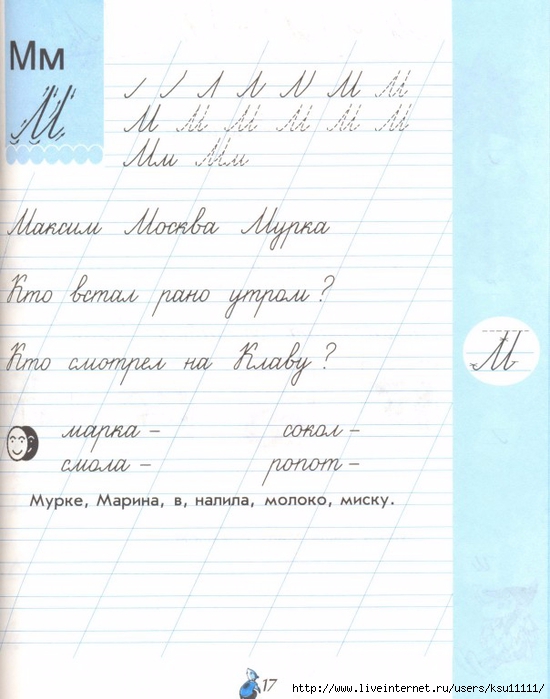 Мм
М
М М М М М М
Мм Мм
Максим Москва Мурка
Кто встал рано утром?
Кто смотрел на Клаву?
М
марка – сокол –
смола – ропот –
Мурке, Марина, в, налила, молоко, миску.
17
http://www.liveinternet.ru/users/ksu11111/